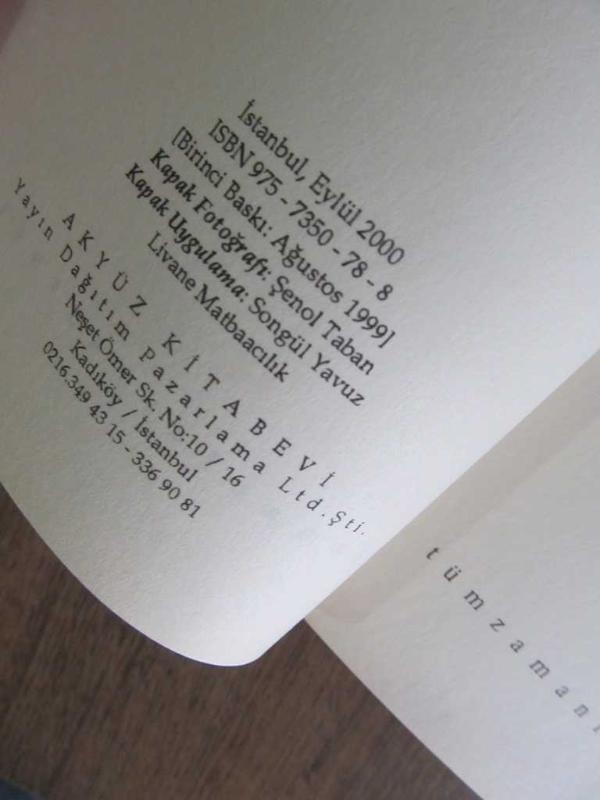 İstanbul, Eylül 2000
ISBN 975 - 7350 - 78 - 8
[Birinci Baskı: Ağustos 1999]
Kapak Fotoğrafı: Şenol Taban
Kapak Uygulama: Songül Yavuz
Livane Matbaacılık
AKYÜZ KİTABEVİ
Yayın Dağıtım Pazarlama Ltd.Şti.
Neşet Ömer Sk. No:10 / 16
Kadıköy / İstanbul
0216.349 43 15 - 336 90 81